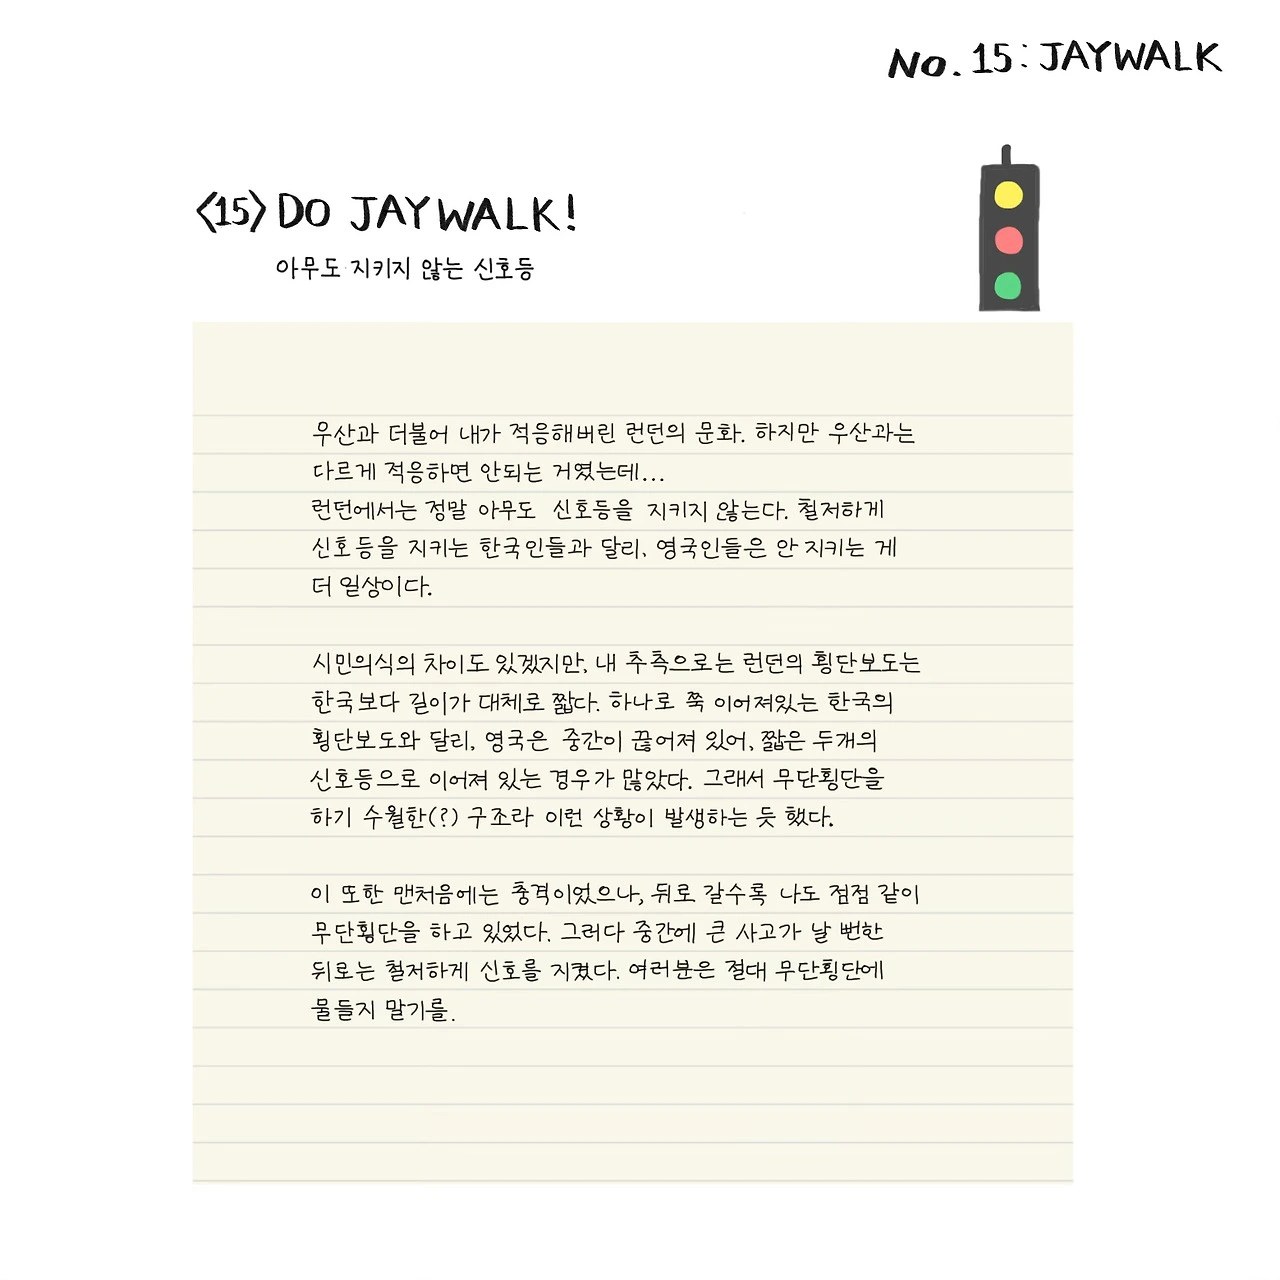 No. 15: JAYWALK
<15> DO JAYWALK!
아무도 지키지 않는 신호등
우산과 더불어 내가 적응해버린 런던의 문화. 하지만 우산과는
다르게 적응하면 안되는 거였는데...
런던에서는 정말 아무도 신호등을 지키지 않는다. 철저하게
신호등을 지키는 한국인들과 달리, 영국인들은 안 지키는 게
더 일상이다.
시민의식의 차이도 있겠지만, 내 추측으로는 런던의 횡단보도는
한국보다 길이가 대체로 짧다. 하나로 쭉 이어져있는 한국의
횡단보도와 달리, 영국은 중간이 끊어져 있어, 짧은 두개의
신호등으로 이어져 있는 경우가 많았다. 그래서 무단횡단을
하기 수월한(?) 구조라 이런 상황이 발생하는 듯 했다.
이 또한 맨처음에는 충격이었으나, 뒤로 갈수록 나도 점점 같이
무단횡단을 하고 있었다. 그러다 중간에 큰 사고가 날 뻔한
뒤로는 철저하게 신호를 지켰다. 여러분은 절대 무단횡단에
물들지 말기를.